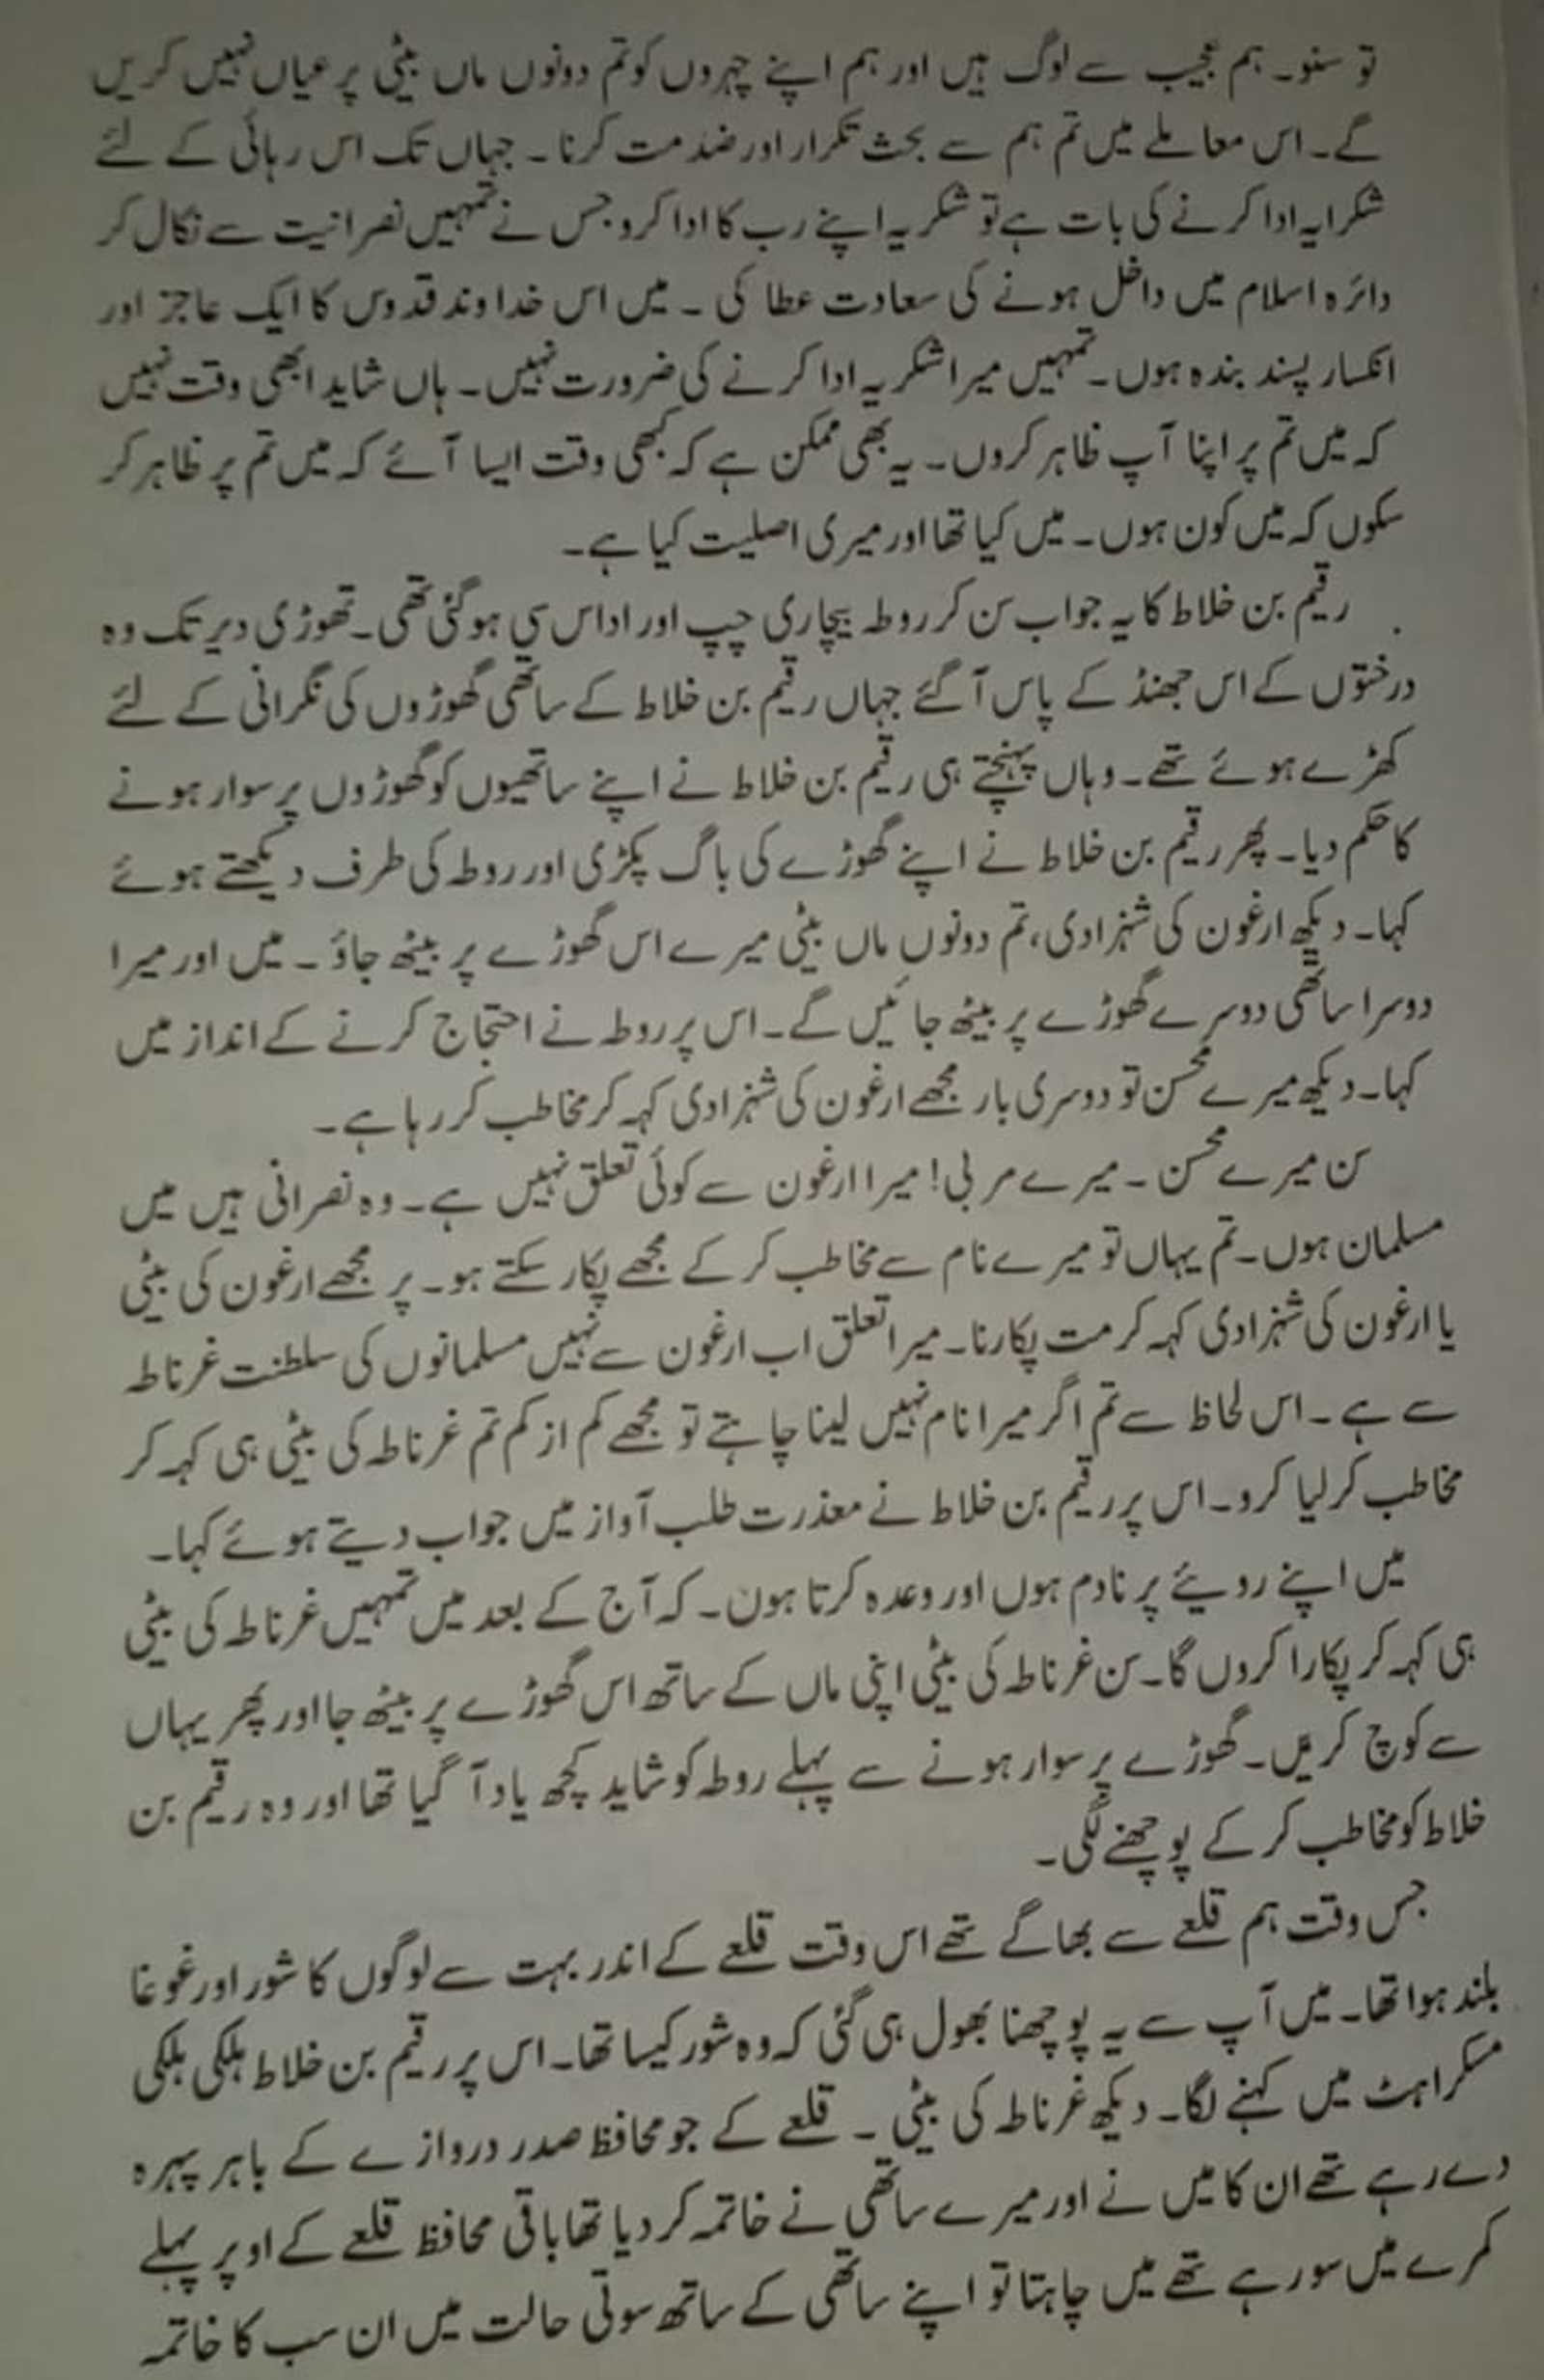 تو سنو۔ ہم عجیب سے لوگ ہیں اور ہم اپنے چہروں کو تم دونوں ماں بیٹی پر عیاں نہیں کریں
گے۔ اس معاملے میں تم ہم سے بحث تکرار اور ضد مت کرنا۔ جہاں تک اس رہائی کے لئے
شکرایہ ادا کرنے کی بات ہے تو شکریہ اپنے رب کا ادا کرو جس نے تمہیں نصرانیت سے نکال کر
دائرہ اسلام میں داخل ہونے کی سعادت عطا کی ۔ میں اس خداوند قدوس کا ایک عاجز اور
انکسار پسند بندہ ہوں۔ تمہیں میرا شکریہ ادا کرنے کی ضرورت نہیں۔ ہاں شاید ابھی وقت نہیں
کہ میں تم پر اپنا آپ ظاہر کروں۔ یہ بھی ممکن ہے کہ کبھی وقت ایسا آئے کہ میں تم پر ظاہر کر
سکوں کہ میں کون ہوں۔ میں کیا تھا اور میری اصلیت کیا ہے۔
رقیم بن خلاط کا یہ جواب سن کر روطہ بیچاری چپ اور اداس سی ہو گئی تھی۔ تھوڑی دیر تک وہ
درختوں کے اس جھنڈ کے پاس آ گئے جہاں رقیم بن خلاط کے ساتھی گھوڑوں کی نگرانی کے لئے
کھڑے ہوئے تھے۔ وہاں پہنچتے ہی رقیم بن خلاط نے اپنے ساتھیوں کو گھوڑوں پر سوار ہونے
کا حکم دیا۔ پھر رقیم بن خلاط نے اپنے گھوڑے کی باگ پکڑی اور روطہ کی طرف دیکھتے ہوئے
کہا۔ دیکھ ارغون کی شہزادی، تم دونوں ماں بیٹی میرے اس گھوڑے پر بیٹھ جاؤ ۔ میں اور میرا
دوسرا ساتھی دوسرے گھوڑے پر بیٹھ جائیں گے۔ اس پر روطہ نے احتجاج کرنے کے انداز میں
کہا۔ دیکھ میرے محسن تو دوسری بار مجھے ارغون کی شہزادی کہہ کر مخاطب کر رہا ہے۔
سن میرے محسن ۔ میرے مربی! میرا ارغون سے کوئی تعلق نہیں ہے۔ وہ نصرانی ہیں میں
مسلمان ہوں۔ تم یہاں تو میرے نام سے مخاطب کر کے مجھے پکار سکتے ہو۔ پر مجھے ارغون کی بیٹی
یا ارغون کی شہزادی کہہ کر مت پکارنا۔ میرا تعلق اب ارغون سے نہیں مسلمانوں کی سلطنت غرناطہ
سے ہے۔ اس لحاظ سے تم اگر میرا نام نہیں لینا چاہتے تو مجھے کم از کم تم غرناطہ کی بیٹی ہی کہہ کر
مخاطب کر لیا کرو۔ اس پر رقیم بن خلاط نے معذرت طلب آواز میں جواب دیتے ہوئے کہا۔
میں اپنے رویئے پر نادم ہوں اور وعدہ کرتا ہون۔ کہ آج کے بعد میں تمہیں غرناطہ کی بیٹی
ہی کہہ کر پکارا کروں گا۔ سن غرناطہ کی بیٹی اپنی ماں کے ساتھ اس گھوڑے پر بیٹھ جا اور پھر یہاں
سے کوچ کریں۔ گھوڑے پر سوار ہونے سے پہلے روطہ کو شاید کچھ یاد آ گیا تھا اور وہ رقیم بن
خلاط کو مخاطب کر کے پوچھنے لگی۔
جس وقت ہم قلعے سے بھاگے تھے اس وقت قلعے کے اندر بہت سے لوگوں کا شور اور غوغا
بلند ہوا تھا۔ میں آپ سے یہ پوچھنا بھول ہی گئی کہ وہ شور کیسا تھا۔ اس پر رقیم بن خلاط ہلکی ہلکی
مسکراہٹ میں کہنے لگا۔ دیکھ غرناطہ کی بیٹی ۔ قلعے کے جو محافظ صدر دروازے کے باہر پہرہ
دے رہے تھے ان کا میں نے اور میرے ساتھی نے خاتمہ کر دیا تھا باقی محافظ قلعے کے اوپر پہلے
کمرے میں سو رہے تھے میں چاہتا تو اپنے ساتھی کے ساتھ سوتی حالت میں ان سب کا خاتمہ